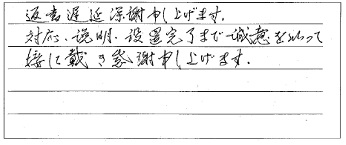 返書遅延深謝申し上げます.
対応、説明、設置完了まで誠意をもって
接し戴き感謝申し上げます.